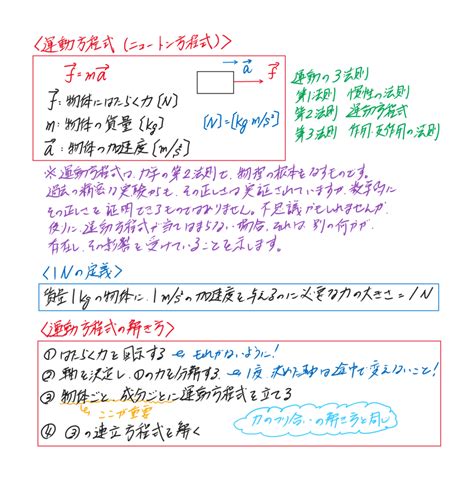 〈運動方程式(ニュートン方程式)〉
f=ma
a
f
f:物体にはたらく力[N]
m:物体の質量[kg]
a:物体の加速度[m/s²]
[N]=[kg m/s²]
運動の3法則
第1法則 慣性の法則
第2法則 運動方程式
第3法則 作用・反作用の法則
※運動方程式は、力学の第2法則で、物理の根本をなすものです。
過去の精密な実験からも、その正しさは実証されていますが、数学的に
その正しさを証明できるものではありません。不思議かもしれませんが、
仮に、運動方程式が当てはまらない場合、それは、別の何かが
存在し、その影響を受けていることを示します。
〈1Nの定義〉
質量1kgの物体に、1m/s²の加速度を与えるのに必要な力の大きさ=1N
〈運動方程式の解き方〉
① はたらく力を図示する ← もれがないように!
② 軸を決定し、①の力を分解する ← 1度決めた軸は途中で変えないこと!
③ 物体ごと、成分ごとに運動方程式を立てる
ここが重要
④ ③の連立方程式を解く
力のつり合いの解き方と同じ